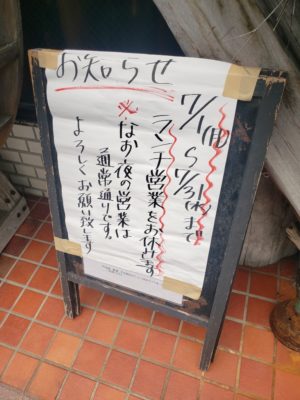 お知らせ
7/1(月)〜7/31(水)まで
ランチ営業をお休みます
※なお、夜の営業は
通常通りです。
よろしくお願い致します